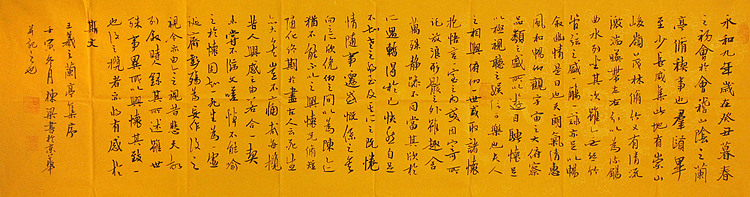 永和九年歲在癸丑暮春
之初會於會稽山陰之蘭
亭脩稧事也羣賢畢
至少長咸集此地有崇山
峻嶺茂林脩竹又有清流
激湍暎帶左右引以為流觴
曲水列坐其次雖無絲竹
管弦之盛一觴一詠亦足以暢
敘幽情是日也天朗氣清惠
風和暢仰觀宇宙之大俯察
品類之盛所以遊目騁懷足
以極視聽之娛信可樂也夫人
之相與俯仰一世或取諸懷
抱悟言一室之內或因寄所
託放浪形骸之外雖趣舍
萬殊靜躁不同當其欣於
所遇暫得於己快然自足
不知老之將至及其所之既惓
情隨事遷感慨係之矣
向之所欣俛仰之間以為陳迹
猶不能不以之興懷況脩短
隨化終期於盡古人云死生
亦大矣豈不痛哉每攬
昔人興感之由若合一契
未嘗不臨文嗟悼不能喻
之於懷固知一死生為虛
誕齊彭殤為妄作後之
視今亦由今之視昔悲夫故
列敘時人錄其所述雖世
殊事異所以興懷其致一
也後之攬者亦將有感於
斯文
王羲之蘭亭集序